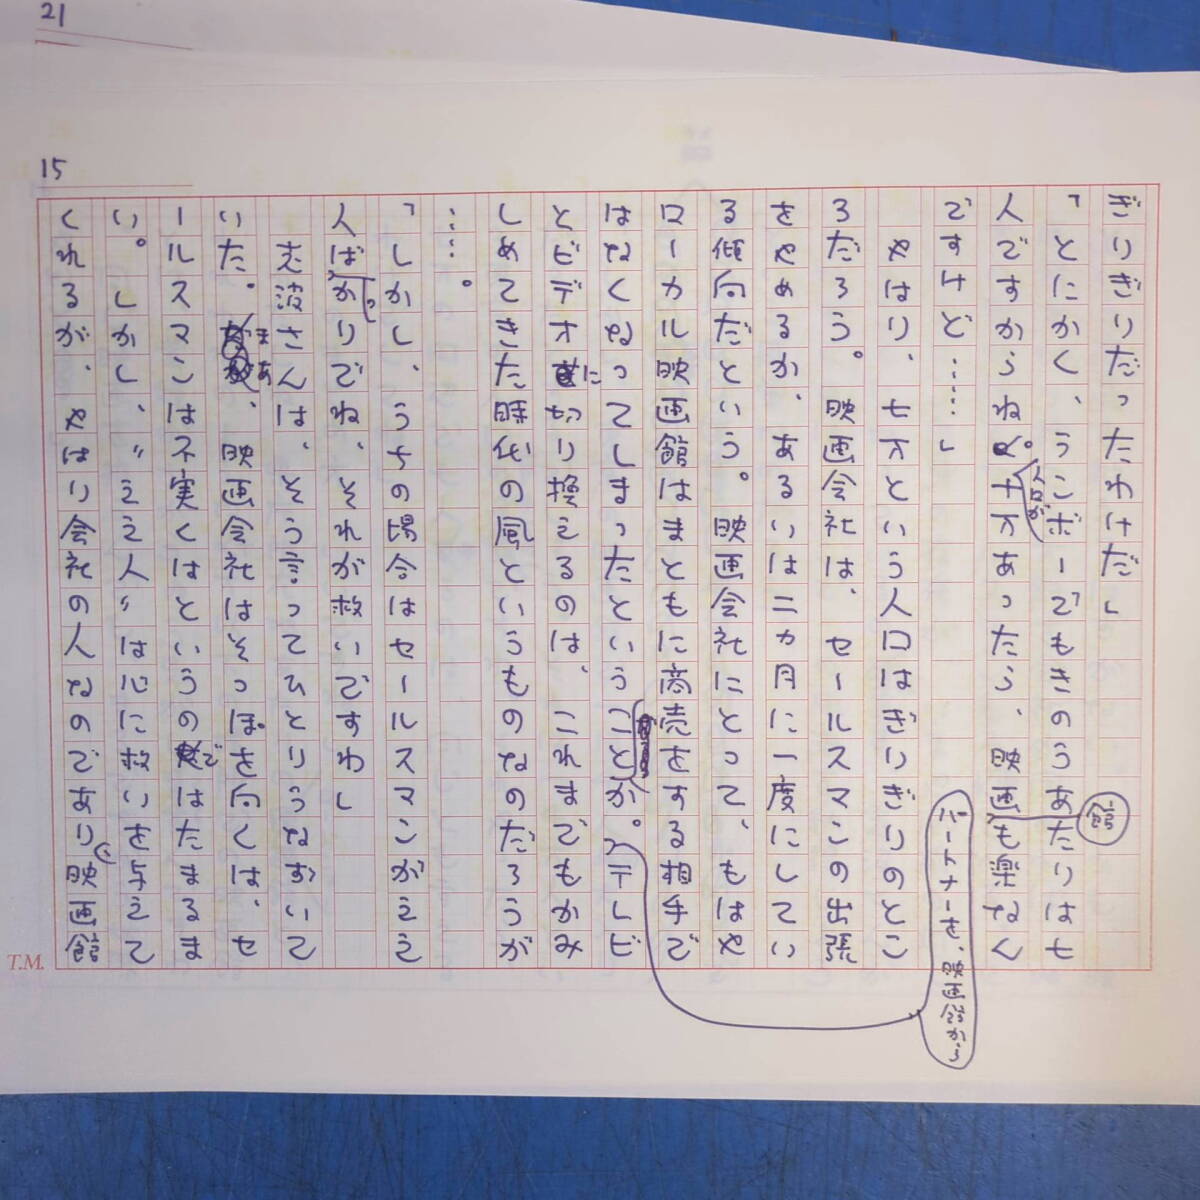 21
15
ぎりぎりだったわけだ」
「とにかく、うこボーでもきのうあたりは七
人ですからねえ。人口が十万あったら、映画館も楽なん
ですけど……」
やはり、七万という人口はぎりぎりのとこ
ろだろう。映画会社は、セールスマンの出張
をやめるか、あるいは二カ月に一度にしてい
る傾向だという。映画会社にとって、もはや
ローカル映画館はまともに商売をする相手で
はなくなってしまったということか。パートナーを、映画館からテレビ
とビデオに切り換えるのは、これまでもかみ
しめてきた時代の風というものなのだろうが
……。
「しかし、うちの場合はセールスマンがええ
人ばっかりでね、それが救いですわ」
志波さんは、そう言ってひとりうなずいて
いた。まあ、映画会社はそっぽを向くは、セ
ールスマンは不実くはというのではたまるま
い。しかし、〝ええ人〟は心に救いを与えて
くれるが、やはり会社の人なのであり、映画館
T.M.